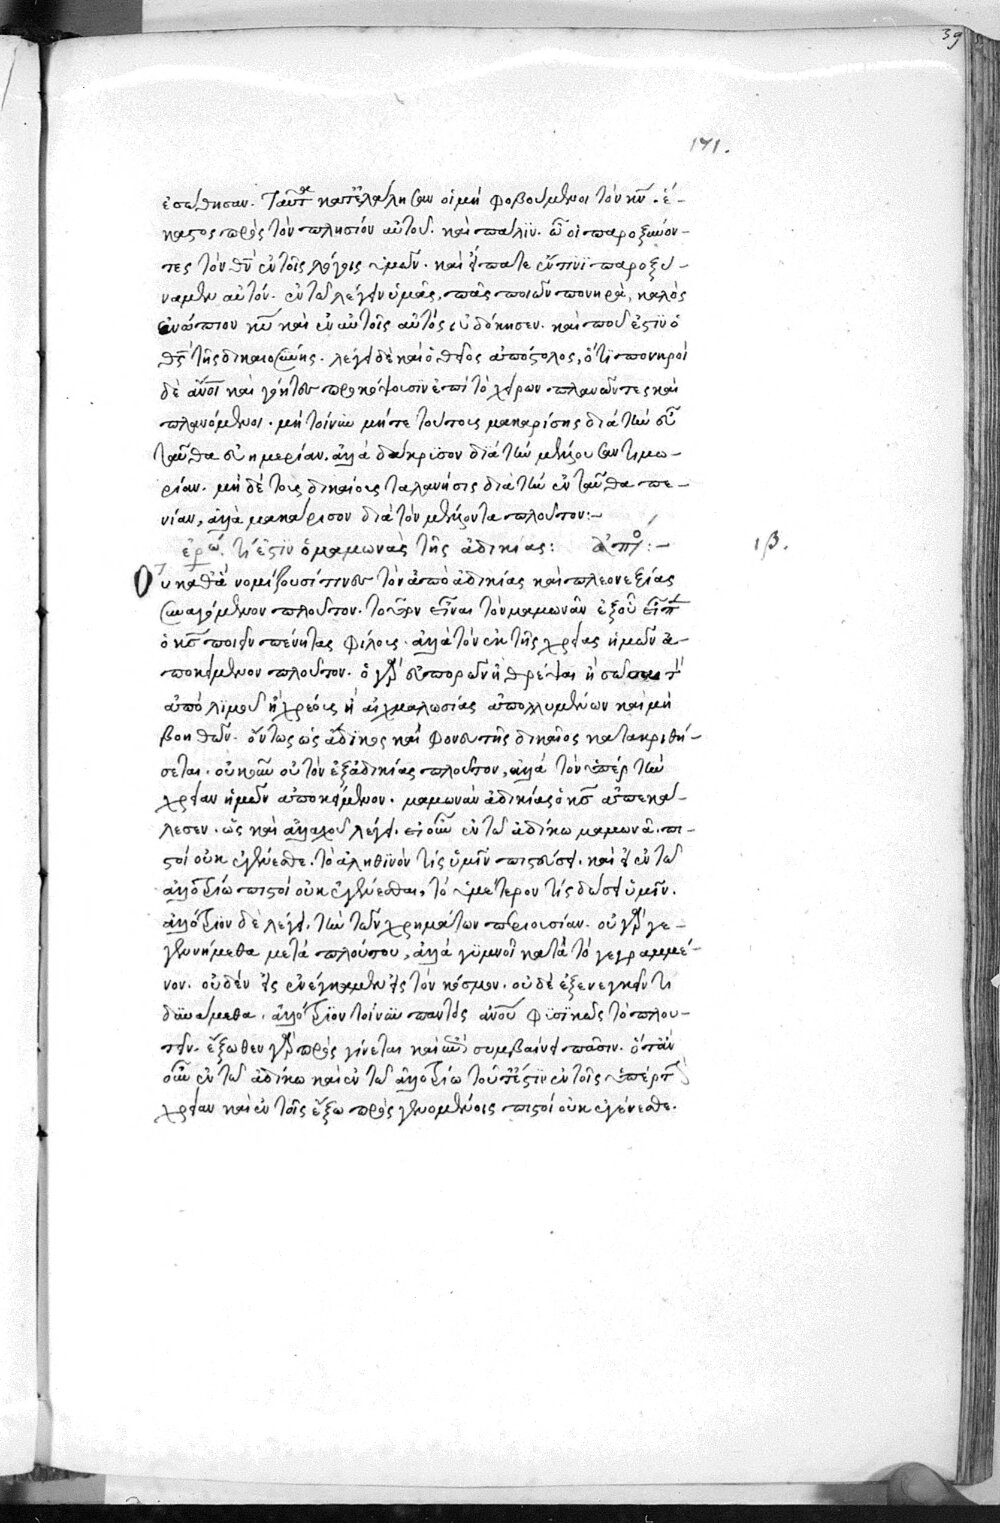 39
171.
ἐσώθησαν. Ταῦτα κατελάλησαν οἱ μὴ φοβούμενοι τὸν κν̅. ἕ-
καστος πρὸς τὸν πλησίον αὐτοῦ. καὶ πάλιν. ὦ οἱ παροξύνον-
τες τὸν θν̅ ἐν τοῖς λόγοις ὑμῶν. καὶ εἴπατε ἐν τίνι παροξύ-
ναμεν αὐτόν. ἐν τῶ λέγειν ὑμᾶς, πᾶς ποιῶν πονηρὰ, καλὸς
ἐνώπιον κυ̅ καὶ ἐν αὐτοῖς αὐτὸς εὐδόκησεν. καὶ ποῦ ἐστὶν ὁ
θς̅ τῆς δικαιοσύνης. λέγει δὲ καὶ ὁ θεῖος ἀπόστολος, ὅτι πονηροὶ
δὲ ἄνοι̅ καὶ γόητες προκόψουσιν ἐπὶ τὸ χεῖρον πλανῶντες καὶ
πλανόμενοι. μὴ τοίνυν μήτε τούτοις μακαρίσης διὰ τὴν ἐν
ταῦθα εὐημερίαν. ἀλλὰ δάκρισον διὰ τὴν μέλλουσαν τιμω-
ρίαν. μὴ δὲ τοὺς δικαίους ταλανήσις διὰ τὴν ἐν ταῦθα πε-
νίαν, ἀλλὰ μακάρισον διὰ τὸν μέλλοντα πλοῦτον:-
ἐρώ. τί ἐστὶν ὁ μαμωνὰς τῆς ἀδικίας: ἀπό:-
ιβ.
Οὐ καθὰ νομίζουσί τινες τὸν ἀπὸ ἀδικίας καὶ πλεονεξίας
συναγόμενον πλοῦτον. τοῦτον εἶναι τὸν μαμωνᾶν ἐξ οὗ εἶπε
ὁ κς̅ ποιεῖν πένητας φίλους. ἀλλὰ τὸν ἐκ τῆς χρείας ἡμῶν ἀ-
ποκείμενον πλοῦτον. ὁ γὰρ εὐπορῶν ἢ θρέψαι ἢ σῶσαί τι
ἀπὸ λιμοῦ ἢ χρέους ἢ αἰχμαλωσίας ἀπολλυμένων καὶ μὴ
βοηθῶν. ὄντως ὡς ἄδικος καὶ φονευτὴς δικαίως κατακριθή-
σεται. οὐκοῦν οὐ τὸν ἐξ ἀδικίας πλοῦτον, ἀλλὰ τὸν ὑπὲρ τὴν
χρείαν ἡμῶν ἀποκείμενον. μαμωνὰν ἀδικίας ὁ κς̅ ἀπεκά-
λεσεν. ὡς καὶ ἀλλαχοῦ λέγει. εἰ οὖν ἐν τῶ ἀδίκω μαμωνᾶ. πι-
στοὶ οὐκ ἐγένεσθε. τὸ ἀληθινὸν τίς ὑμῖν πιστεύσει. καὶ εἰ ἐν τῶ
ἀλλοτρίω πιστοὶ οὐκ ἐγένεσθαι, τὸ ὑμέτερον τίς δώσει ὑμῖν.
ἀλλότριον δὲ λέγει. τὴν τῶν χρημάτων περιουσίαν. οὐ γὰρ γε-
γεννήμεθα μετὰ πλούτου, ἀλλὰ γυμνοὶ κατὰ τὸ γεγραμμέ-
νον. οὐδὲν εἰς ἐνέγκαμεν εἰς τὸν κόσμον. οὐδὲ ἐξενεγκεῖν τι
δυνάμεθα. ἀλλότριον τοίνυν παντὸς ἀνου̅ φισικῶς τὸ πλου-
τεῖν. ἔξωθεν γὰρ πρὸς γίνεται καὶ οὐ συμβαίνει πᾶσιν. ὅταν
οὖν ἐν τῶ ἀδίκω καὶ ἐν τῶ ἀλλοτρίω τουτέστιν ἐν τοῖς ὑπὲρ τὴν
χρείαν καὶ ἐν τοῖς ἔξω πρὸς γενομένοις πιστοὶ οὐκ ἐγένεσθε.